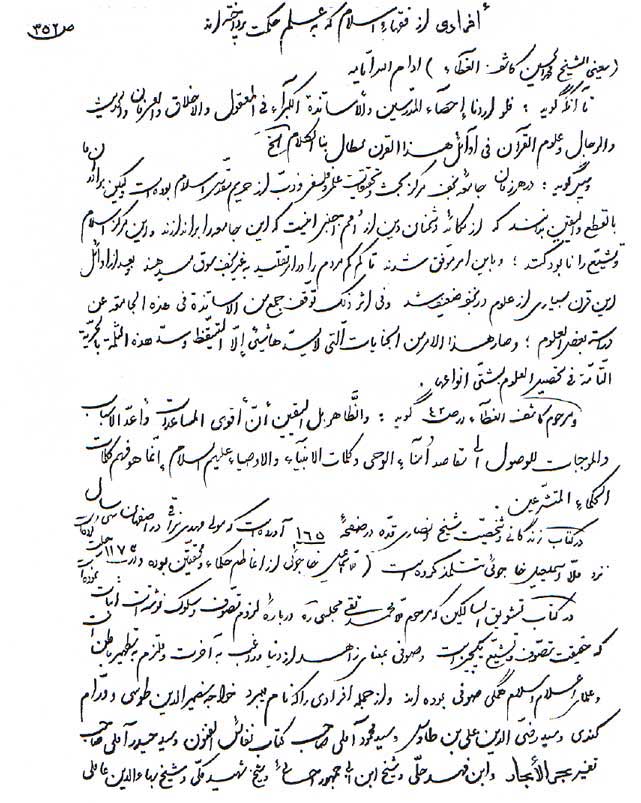 أفرادی از فقهاء اسلام که به علم حکمت پرداخته‌اند
ص ۳۵۲
(یعنی الشیخ محمد الحسین کاشف الغطاء) ادام الله ایامه
تا آنکه گوید: فلو أردنا إحصاء المدرسین والأساتذة الکبراء فی المعقول والاخلاق والعرفان والحدیث
والرجال وعلوم القرآن فی أوائل هذا القرن لطال بنا الکلام الخ
و نیز گوید: در هر زمان جامعه نجف مرکز بحث و تحقیقات علمی و فلسفی و ذبّ از حریم مقدس اسلام بوده است
بالقطع والیقین بدانند که از مکائد دشمنان دین از امم اجنبی اینست که این جامعه را براندازند و این مرکز اسلام
و تشیع را نابود کنند؛ و باین امر موفق شدند تا کم کم مردم را در امر تقلید به غیر نجف سوق میدهند بعد از اوائل
این قرن بسیاری از علوم در نجف ضعیف شد وفی اثر ذلک توقّف جمع من الاساتذة فی هذه الجامعة عن
دراسة بعض العلوم؛ وصار هذا الامر من الجنایات الّتی لا یسدّها شیئ إلّا التیقّظ وسدّ هذه الثلمة بالحریّة
التامّة فی تحصیل العلوم بشتّی انواعها.
و مرحوم کاشف الغطاء در ص ۴۲ گوید: والظاهر بل الیقین أنّ أقوی المساعدات وأعدّ الاسباب
والموجبات للوصول الی مقاصد اُمناء الوحی وکلمات الانبیاء والاوصیاء علیهم السلام إنّما هو فهم کلمات
الحکماء المتشرعین.
در کتاب زندگانی و شخصیت شیخ انصاری قدّه در صفحه ۱۶۵ آورده است که مولی مهدی نراقی در اصفهان سی سال
نزد ملّا اسمعیل خاجوئی تتلمذ کرده است (ملّا اسمعیل خاجوئی از اعاظم حکماء و محققین بوده و در ۱۱۷۳ رحلت
در کتاب تشویق السالکین که مرحوم ملّا محمد تقی مجلسی ره درباره لزوم تصوّف و سلوک نوشته است اثبات
که حقیقت تصوّف و تشیّع یکچیز است وصوفی بمعنای زاهد از دنیا و راغب به آخرت و ملتزم به تطهیر باطن است
وعلماء اعلام اسلام همگی صوفی بوده‌اند واز جمله افرادی را که نام میبرد خواجه نصیر الدین طوسی و ورّام
کندی وسید رضیّ الدین علی بن طاووس وسید محمود آملی صاحب کتاب نفائس الفنون وسید حیدر آملی صاحب
تفسیر بحر الأبحار وابن فهد حلّی وشیخ ابن ابی جمهور احسائی وشیخ شهید مکّی وشیخ بهاء الدین عاملی